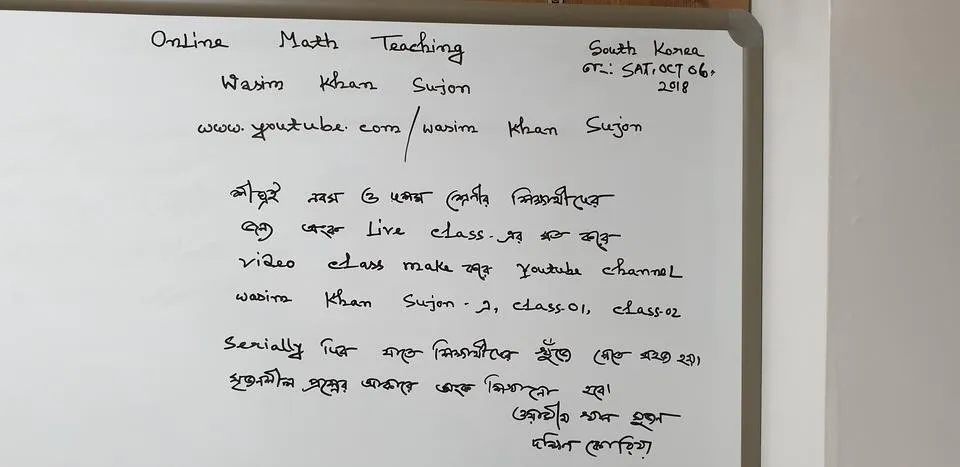 Online Math Teaching
South Korea
তাং: SAT, OCT 06,
2018
Wasim Khan Sujon
www.youtube.com/wasim Khan Sujon
শীঘ্রই নবম ও দশম শ্রেনীর শিক্ষার্থীদের
জন্য অংক Live class-এর মত করে
video class make করে youtube channel
wasim Khan Sujon-এ, class-01, class-02
Serially দিব যাতে শিক্ষার্থীদের খুঁজে পেতে সহজ হয়।
সৃজনশীল প্রশ্নের আকারে অংক শিখানো হবে।
ওয়াসীম খান সুজন
দক্ষিন কোরিয়া